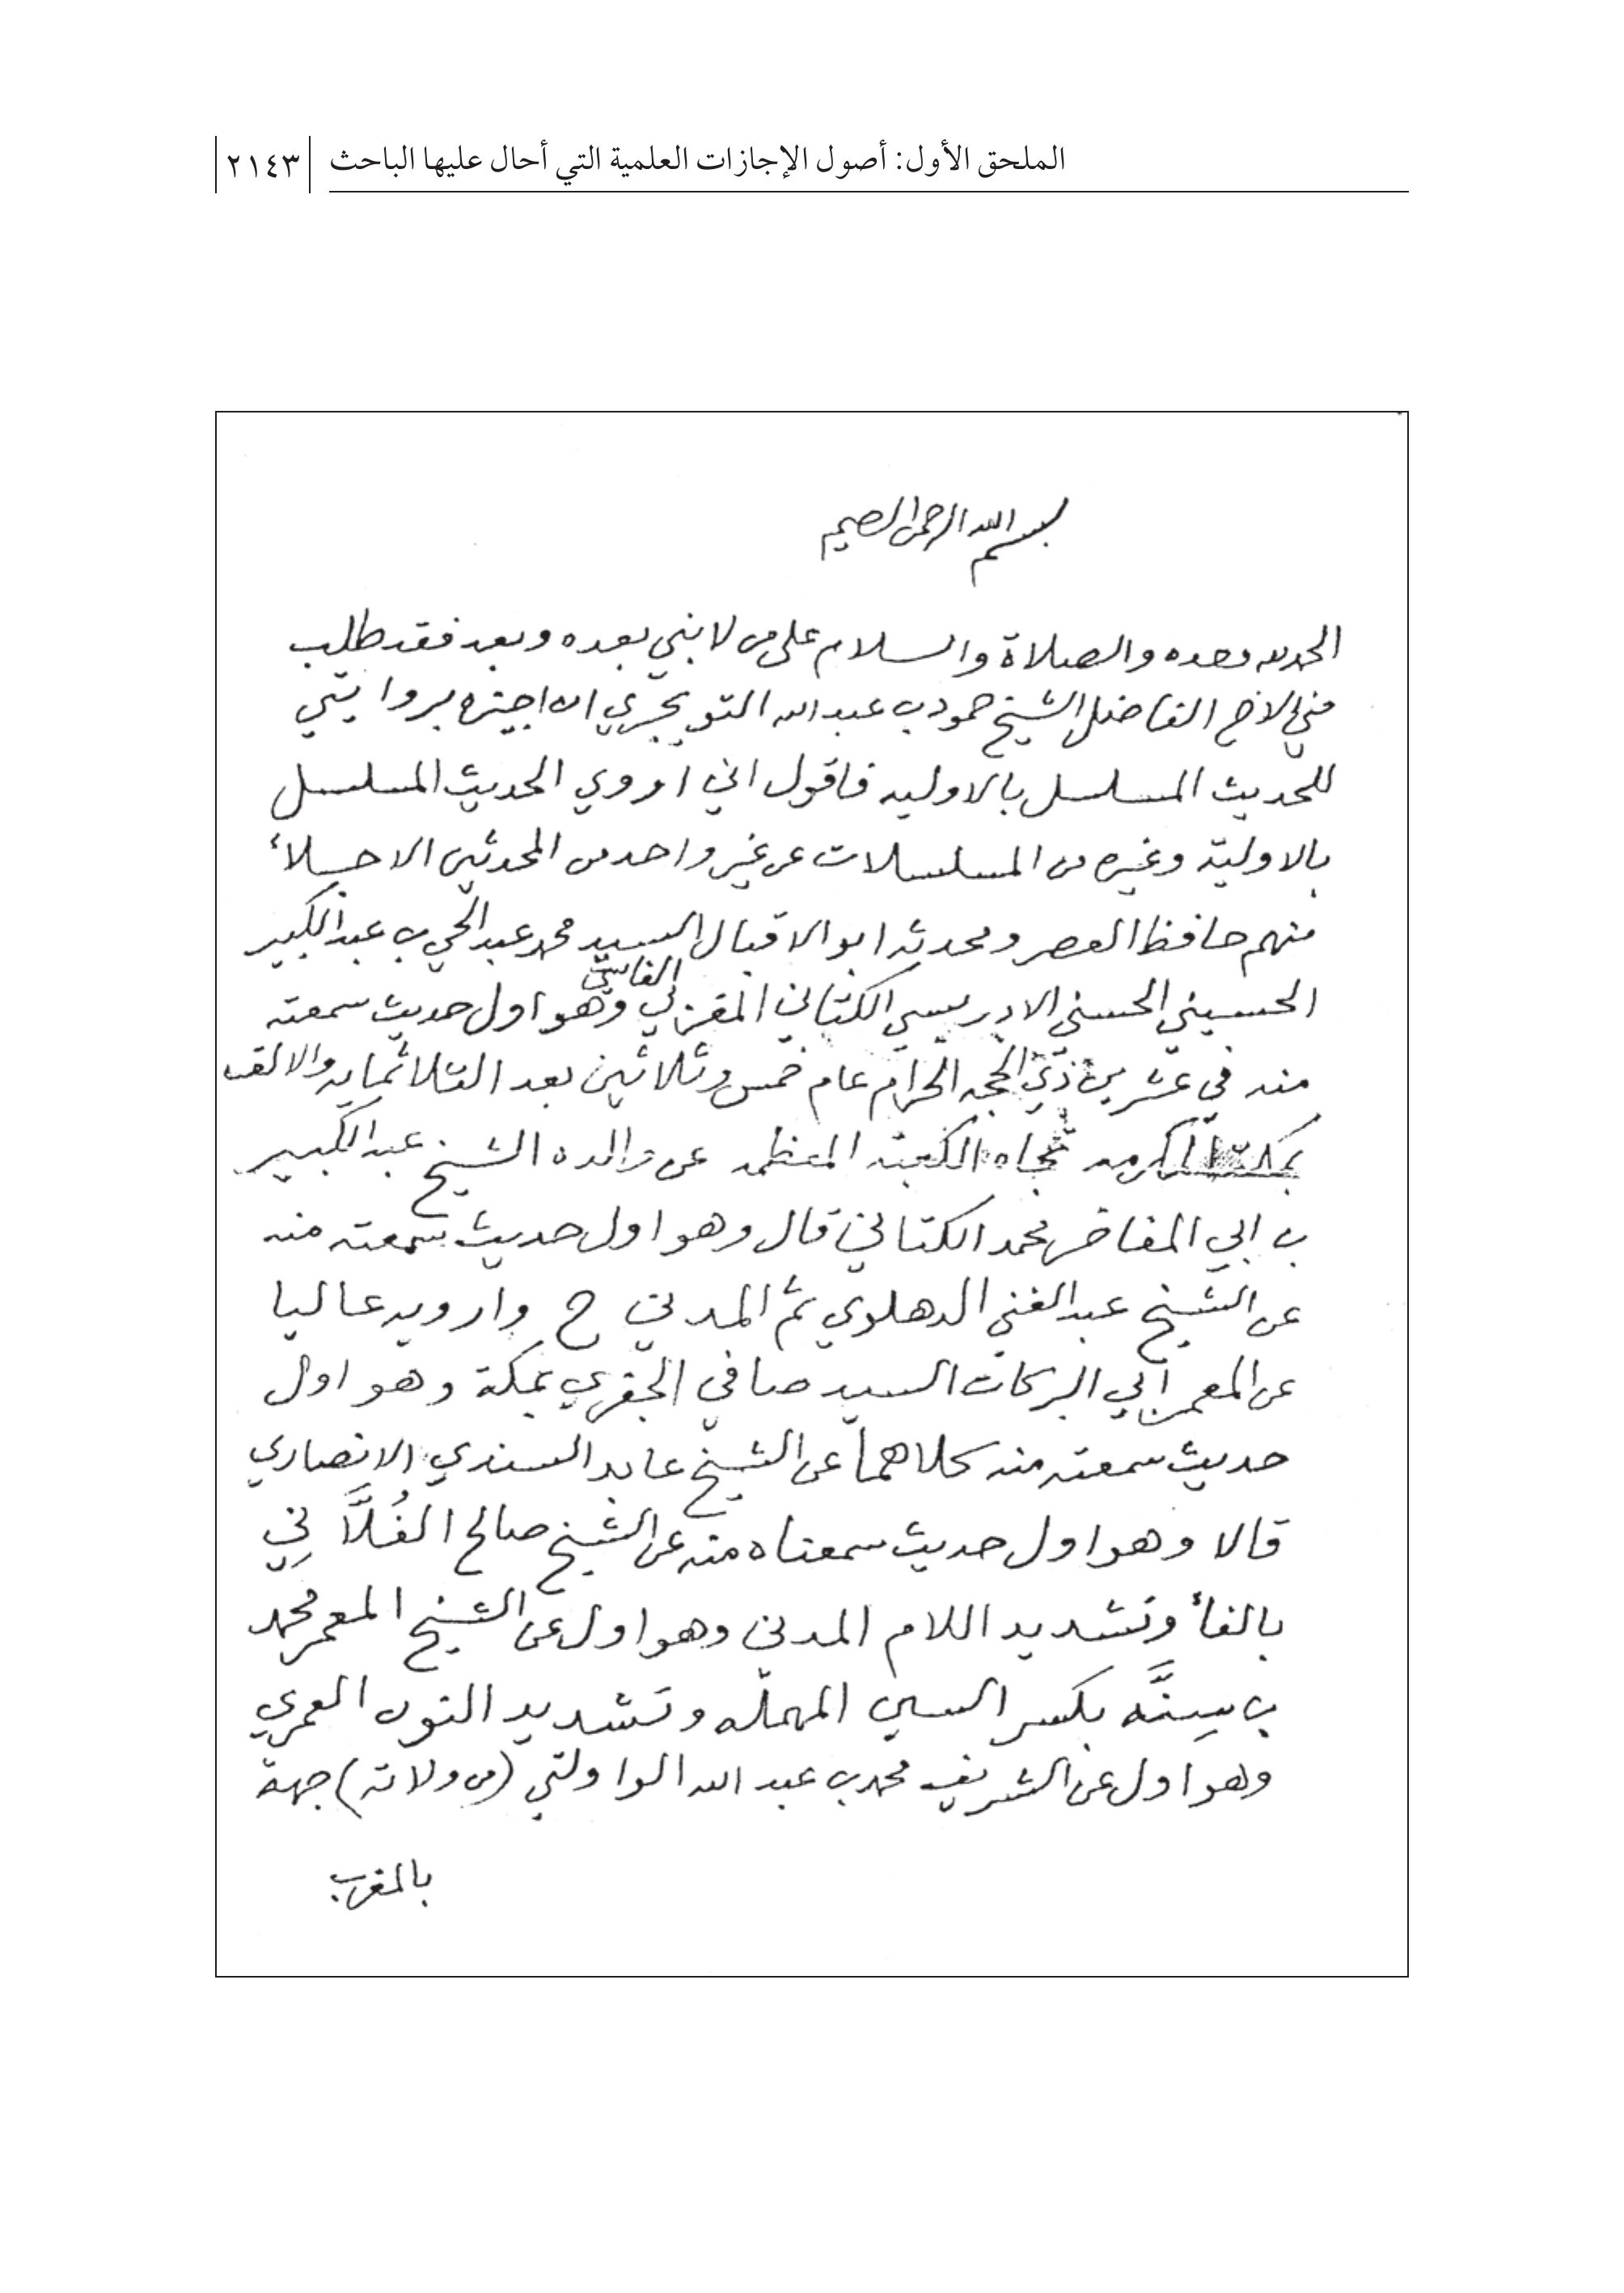 الملحق الأول: أصول الإجازات العلمية التي أحال عليها الباحث ٢١٤٣
بسم الله الرحمن الرحيم
الحمد لله وحده والصلاة والسلام على من لا نبي بعده وبعد فقد طلب
مني الاخ الفاضل الشيخ حمود بن عبد الله التويجري ان اجيزه بروايتي
للحديث المسلسل بالاوليه فاقول اني اروي الحديث المسلسل
بالاولية وغيره من المسلسلات عن غير واحد من المحدثين الاجلاء
منهم حافظ العصر ومحدثه ابو الاقبال السيد محمد عبد الحي بن عبد الكبير
الحسيني الحسني الادريسي الكتاني المغربي الفاسي وهو اول حديث سمعته
منه في عشرين ذي الحجه الحرام عام خمس وثلاثين بعد الثلاثمايه والالف
بمكة المكرمه تجاه الكعبة المعظمه عن والده الشيخ عبد الكبير
بن ابي المفاخر محمد الكتاني قال وهو اول حديث سمعته منه
عن الشيخ عبد الغني الدهلوي ثم المدني ح وارويه عاليا
عن المعمر ابي البركات السيد صافي الجفري بمكة وهو اول
حديث سمعته منه كلاهما عن الشيخ عابد السندي الانصاري
قالا وهو اول حديث سمعناه منه عن الشيخ صالح الفُلَّاني
بالفاء وتشديد اللام المدني وهو اول عن الشيخ المعمر محمد
بن سِنَّه بكسر السين المهمله وتشديد النون العمري
وهو اول عن الشريف محمد بن عبد الله الواولتي (من ولاته) جهة
بالمغرب